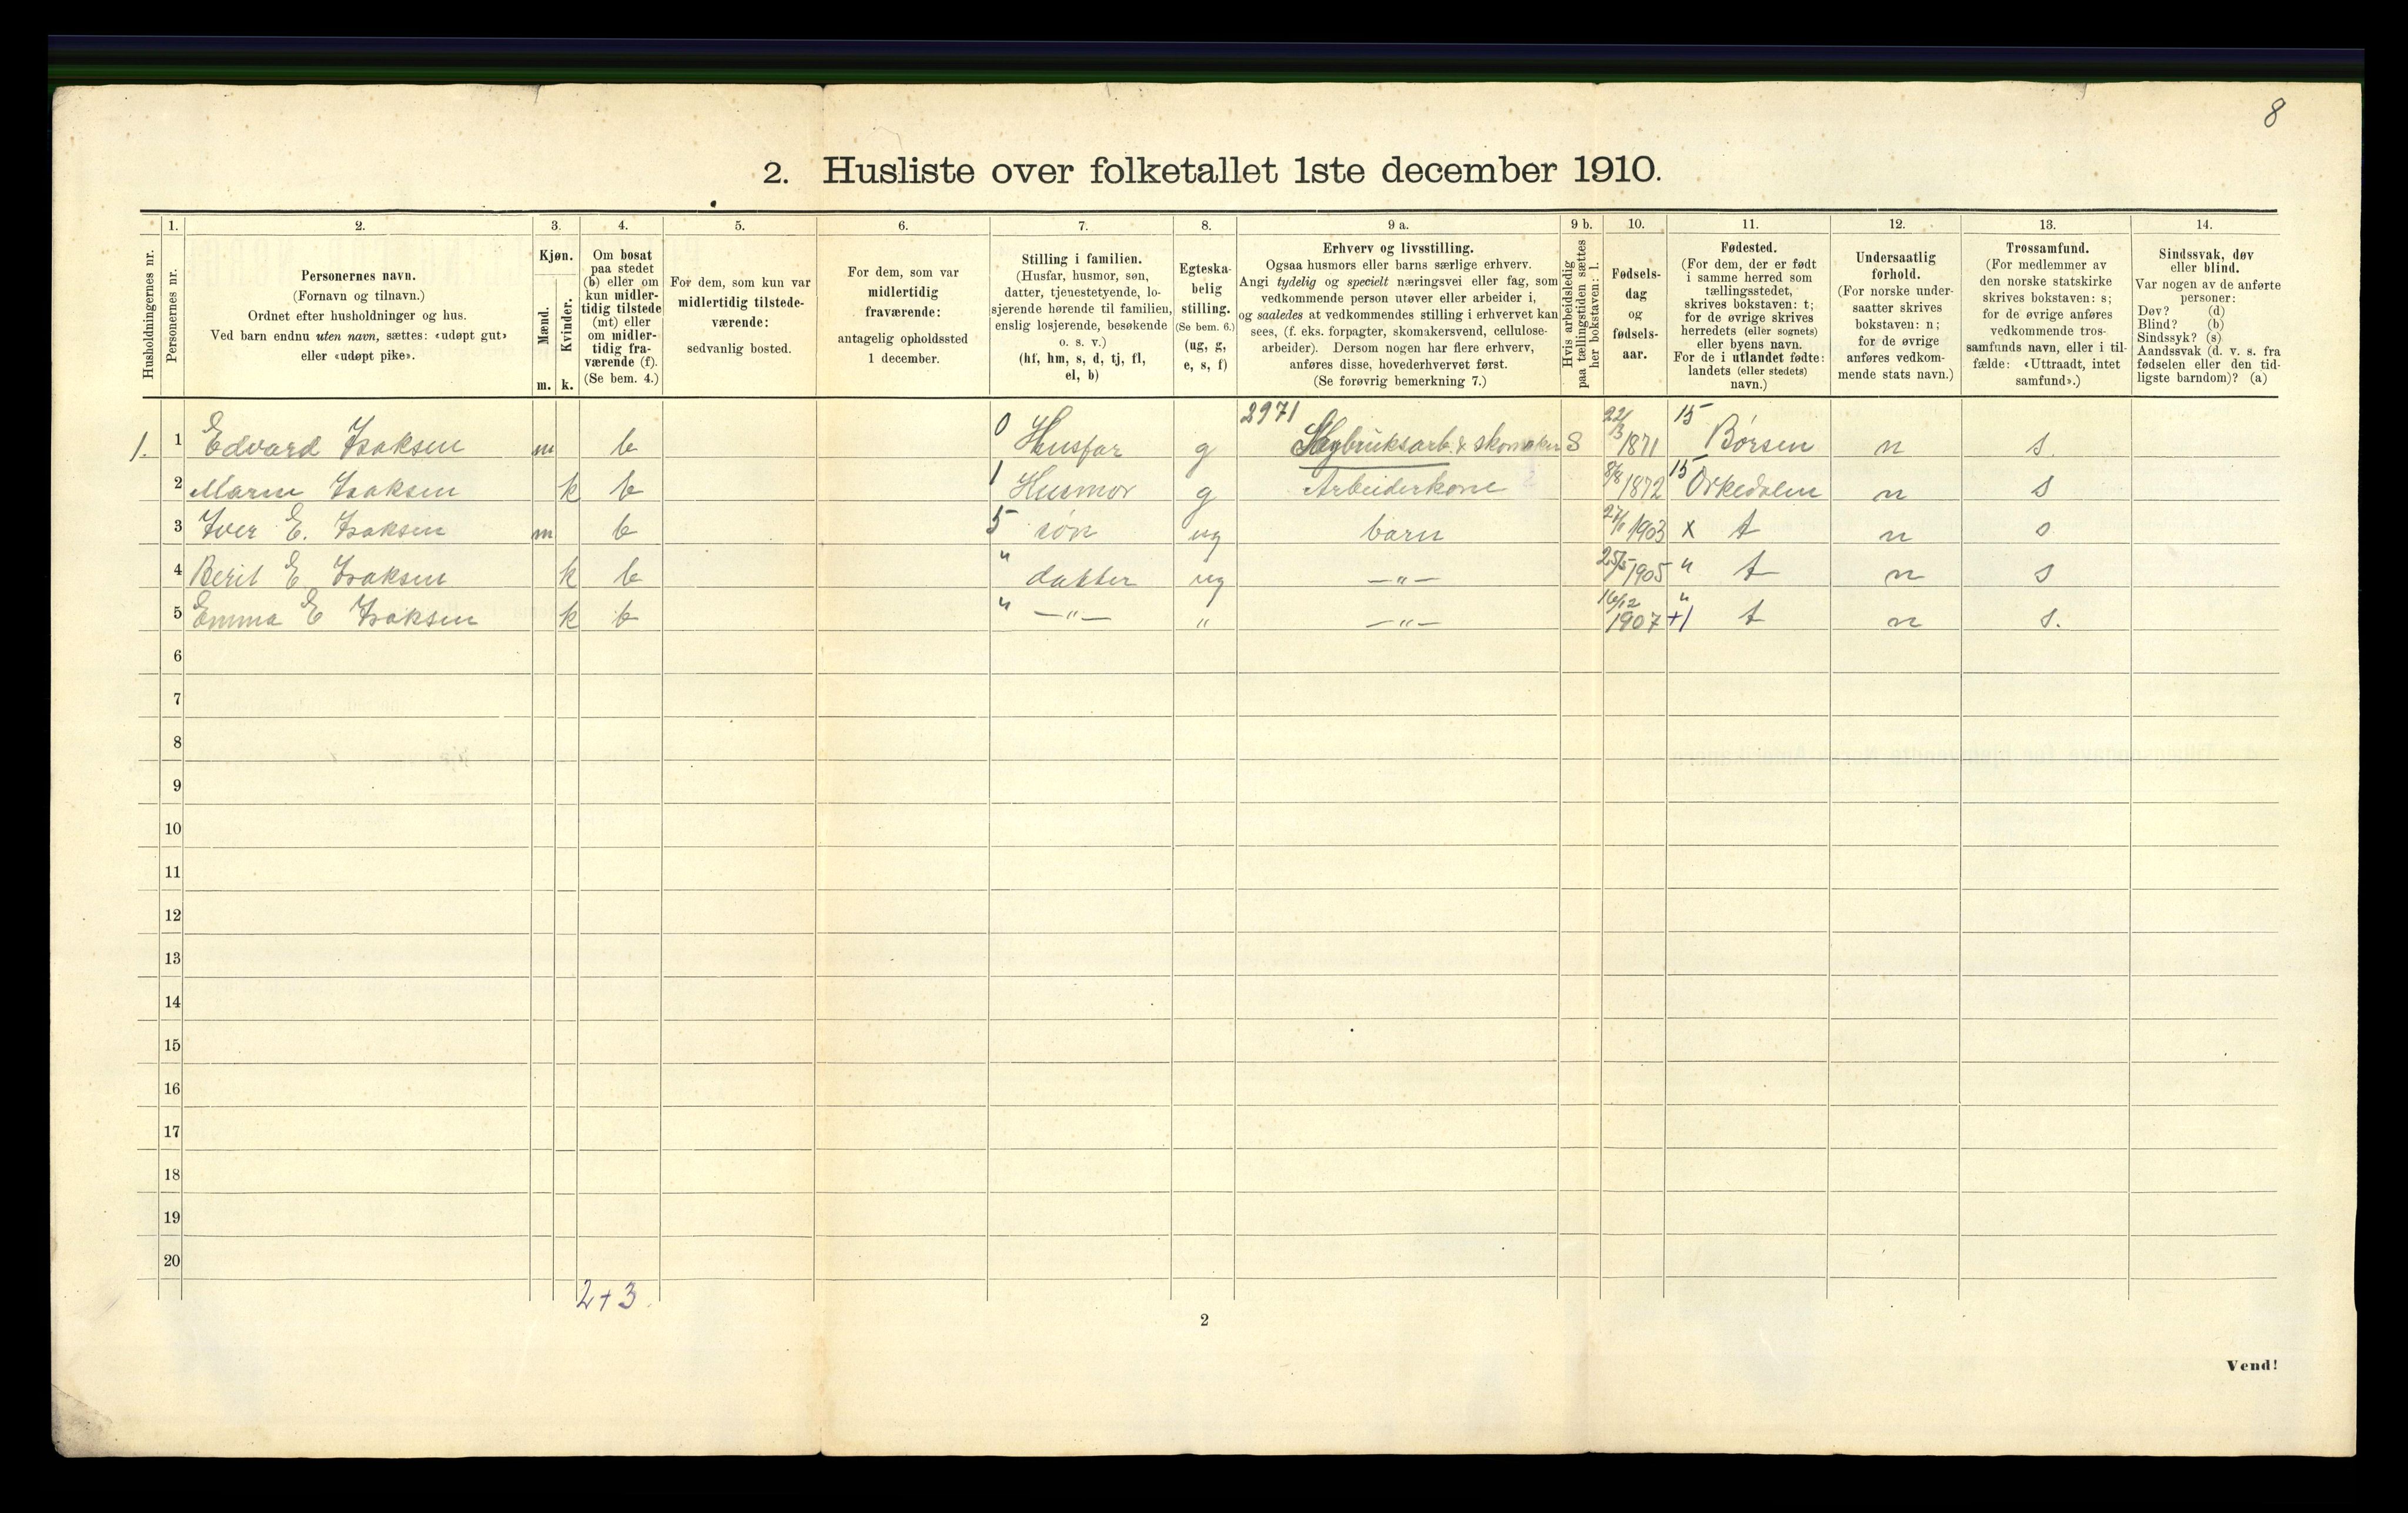 8
2. Husliste over folketallet 1ste december 1910.
Husholdningernes nr.
1. Personernes nr.
2. Personernes navn. (Fornavn og tilnavn.) Ordnet efter husholdninger og hus. Ved barn endnu uten navn, sættes: «udøpt gut» eller «udøpt pike».
3. Kjøn. Mænd. m. Kvinder. k.
4. Om bosat paa stedet (b) eller om kun midlertidig tilstede (mt) eller om midlertidig fraværende (f). (Se bem. 4.)
5. For dem, som kun var midlertidig tilstedeværende: sedvanlig bosted.
6. For dem, som var midlertidig fraværende: antagelig opholdssted 1 december.
7. Stilling i familien. (Husfar, husmor, søn, datter, tjenestetyende, losjerende hørende til familien, enslig losjerende, besøkende o. s. v.) (hf, hm, s, d, tj, fl, el, b)
8. Egteskabelig stilling. (Se bem. 6.) (ug, g, e, s, f)
9 a. Erhverv og livsstilling. Ogsaa husmors eller barns særlige erhverv. Angi tydelig og specielt næringsvei eller fag, som vedkommende person utøver eller arbeider i, og saaledes at vedkommendes stilling i erhvervet kan sees, (f. eks. forpagter, skomakersvend, cellulosearbeider). Dersom nogen har flere erhverv, anføres disse, hovederhvervet først. (Se forøvrig bemerkning 7.)
9 b. Hvis arbeidsledig paa tællingstiden sættes her bokstaven: l.
10. Fødselsdag og fødselsaar.
11. Fødested. (For dem, der er født i samme herred som tællingsstedet, skrives bokstaven: t; for de øvrige skrives herredets (eller sognets) eller byens navn. For de i utlandet fødte: landets (eller stedets) navn.)
12. Undersaatlig forhold. (For norske undersaatter skrives bokstaven: n; for de øvrige anføres vedkommende stats navn.)
13. Trossamfund. (For medlemmer av den norske statskirke skrives bokstaven: s; for de øvrige anføres vedkommende trossamfunds navn, eller i tilfælde: «Uttraadt, intet samfund».)
14. Sindssvak, døv eller blind. Var nogen av de anførte personer: Døv? (d) Blind? (b) Sindssyk? (s) Aandssvak (d. v. s. fra fødselen eller den tidligste barndom)? (a)
1. 1 Edvard Isaksen m b 0 Husfar g 2971 Sagbruksarb. & skomaker S 22/3 1871 15 Børsen n s.
2 Maren Isaksen k b 1 Husmor g Arbeiderkone 8/8 1872 15 Orkedalen n s
3 Iver E. Isaksen m b 5 søn ug barn 1903 x t n s
4 Berit E. Isaksen k b " datter ug —"— 25/5 1905 " t n s
5 Emma E Isaksen k b " —"— " —"— 16/12 1907 " +1 t n s.
6
7
8
9
10
11
12
13
14
15
16
17
18
19
20
2+3.
2
Vend!